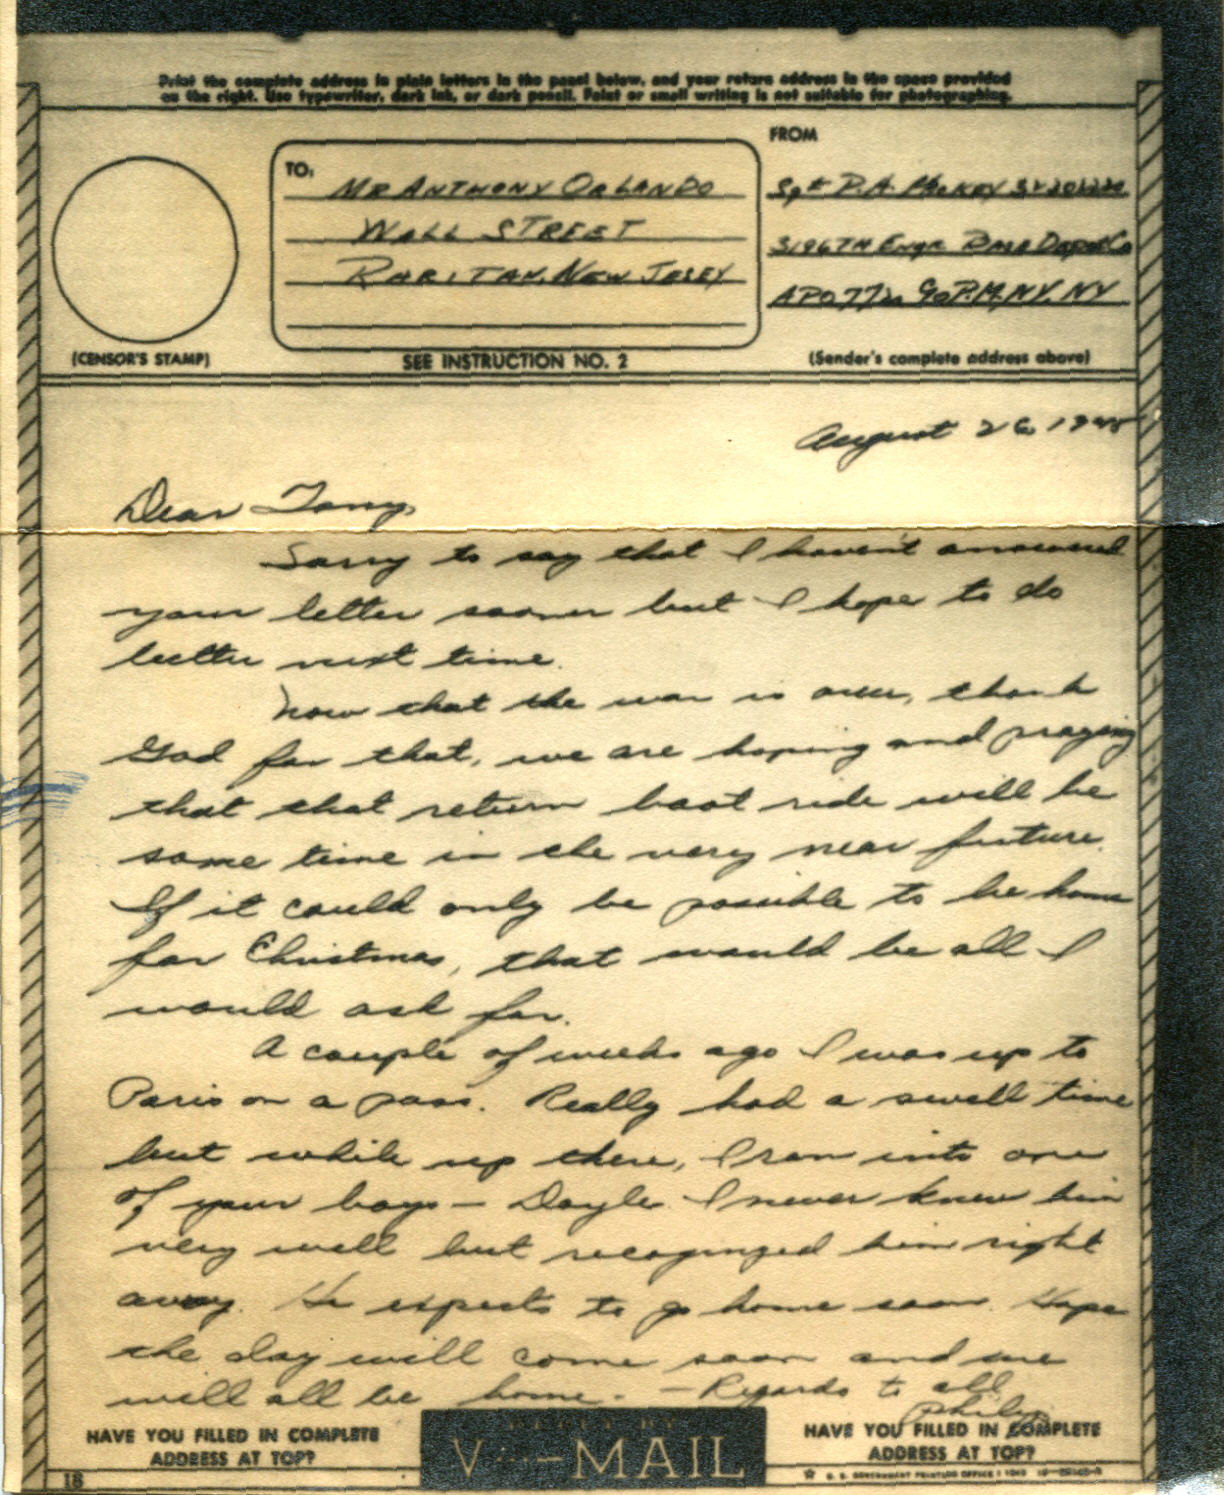 Print the complete address in plain letters in the panel below, and your return address in the space provided
on the right. Use typewriter, dark ink, or dark pencil. Faint or small writing is not suitable for photographing.
FROM
TO:
MR ANTHONY ORLANDO
WALL STREET
RARITAN, NEW JESEY
Sgt P.A. McKEY
3196TH Engr Base Depot Co
APO 772 C/o P.M. NY. NY
(CENSOR'S STAMP)
SEE INSTRUCTION NO. 2
(Sender's complete address above)
August 26, 1945
Dear Tony,
Sorry to say that I haven't answered
your letter sooner but I hope to do
better next time.
Now that the war is over, thank
God for that, we are hoping and praying
that that return boat ride will be
some time in the very near future.
If it could only be possible to be home
for Christmas, that would be all I
would ask for.
A couple of weeks ago I was up to
Paris on a pass. Really had a swell time
but while up there, I ran into one
of your boys – Doyle. I never knew him
very well but recognized him right
away. He expects to go home soon. Hope
the day will come soon and we
will all be home. – Regards to all
Philip
HAVE YOU FILLED IN COMPLETE
ADDRESS AT TOP?
REPLY BY
V···—MAIL
HAVE YOU FILLED IN COMPLETE
ADDRESS AT TOP?
18
U. S. GOVERNMENT PRINTING OFFICE